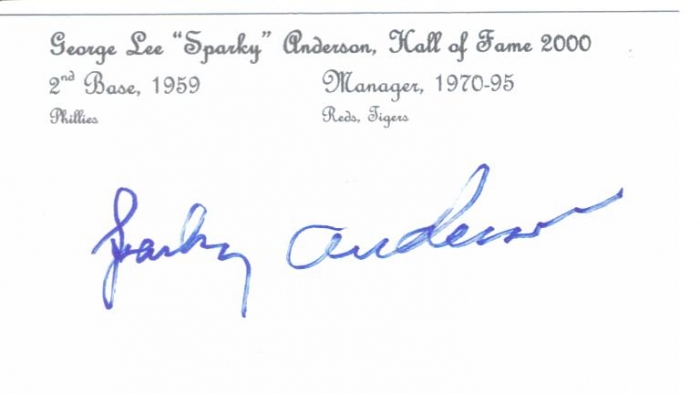 George Lee "Sparky" Anderson, Hall of Fame 2000
2nd Base, 1959 Manager, 1970-95
Phillies Reds, Tigers
Sparky Anderson